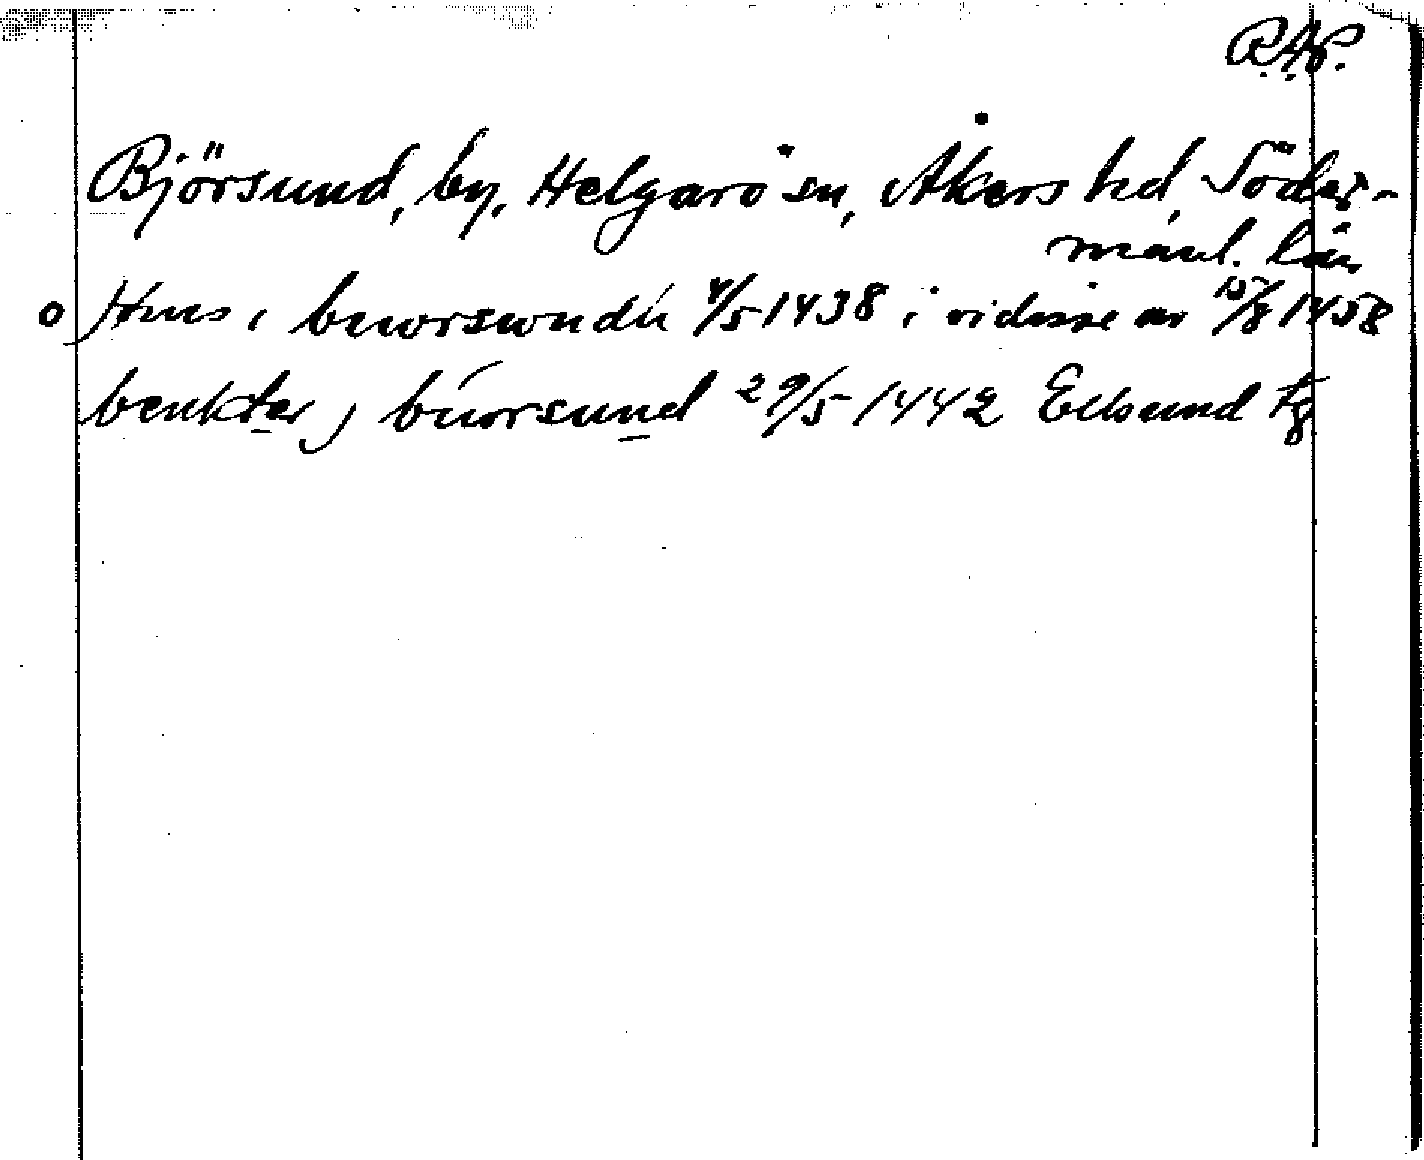 R.A.P.
Björsund, by, Helgarö sn, Åkers hd, Söder-
manl. län
o Hnes i beworswndh 4/5 1438 i vidisse av 15/8 1458
benkter j biworsund 29/5 1442 Eksund